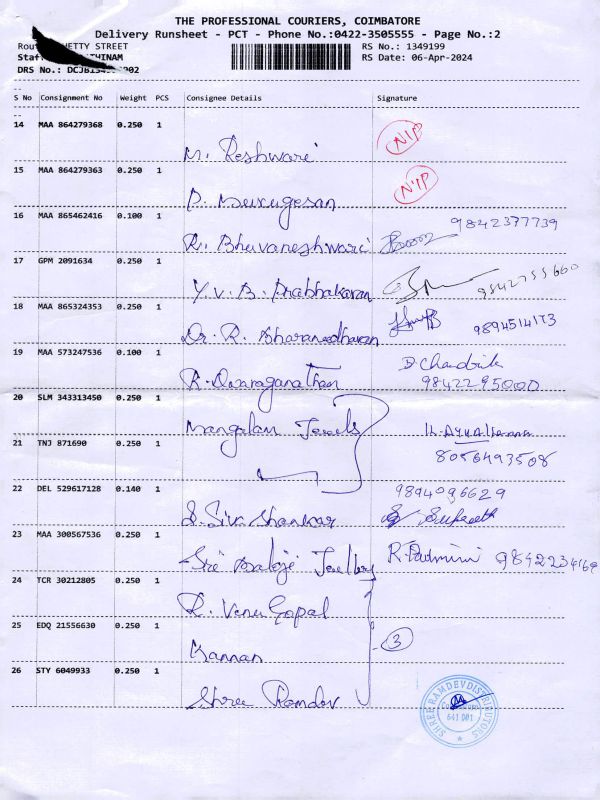 THE PROFESSIONAL COURIERS, COIMBATORE
Delivery Runsheet - PCT - Phone No.:0422-3505555 - Page No.:2
HETTY STREET
RS No.: 1349199
THINAM
RS Date: 06-Apr-2024
DRS No.:
S No Consignment No Weight PCS Consignee Details Signature
14 MAA 864279368 0.250 1
M. Reshwari N.I.P
15 MAA 864279363 0.250 1
P. Murugesan N.I.P
16 MAA 865462416 0.100 1
R. Bhuvaneshwari 9842377739
17 GPM 2091634 0.250 1
Y.V.B. Prabhakaran 9842755660
18 MAA 865324353 0.250 1
Dr. R. Bharanedharan
19 MAA 573247536 0.100 1
R. D. Chandrik
9842295000
20 SLM 343313450 0.250 1
Mangalam Jewels
21 TNJ 871690 0.250 1
8056493508
22 DEL 529617128 0.140 1
S. Siva Shankar 9894096629
23 MAA 300567536 0.250 1
Sri Balaji Jewellery R. Padmini 9842234169
24 TCR 30212805 0.250 1
R. Venu Gopal
25 EDQ 21556630 0.250 1
Kannan 3
26 STY 6049933 0.250 1
Shree Ramdev
SHREE RAMDEV DISTRIBUTORS
641 001